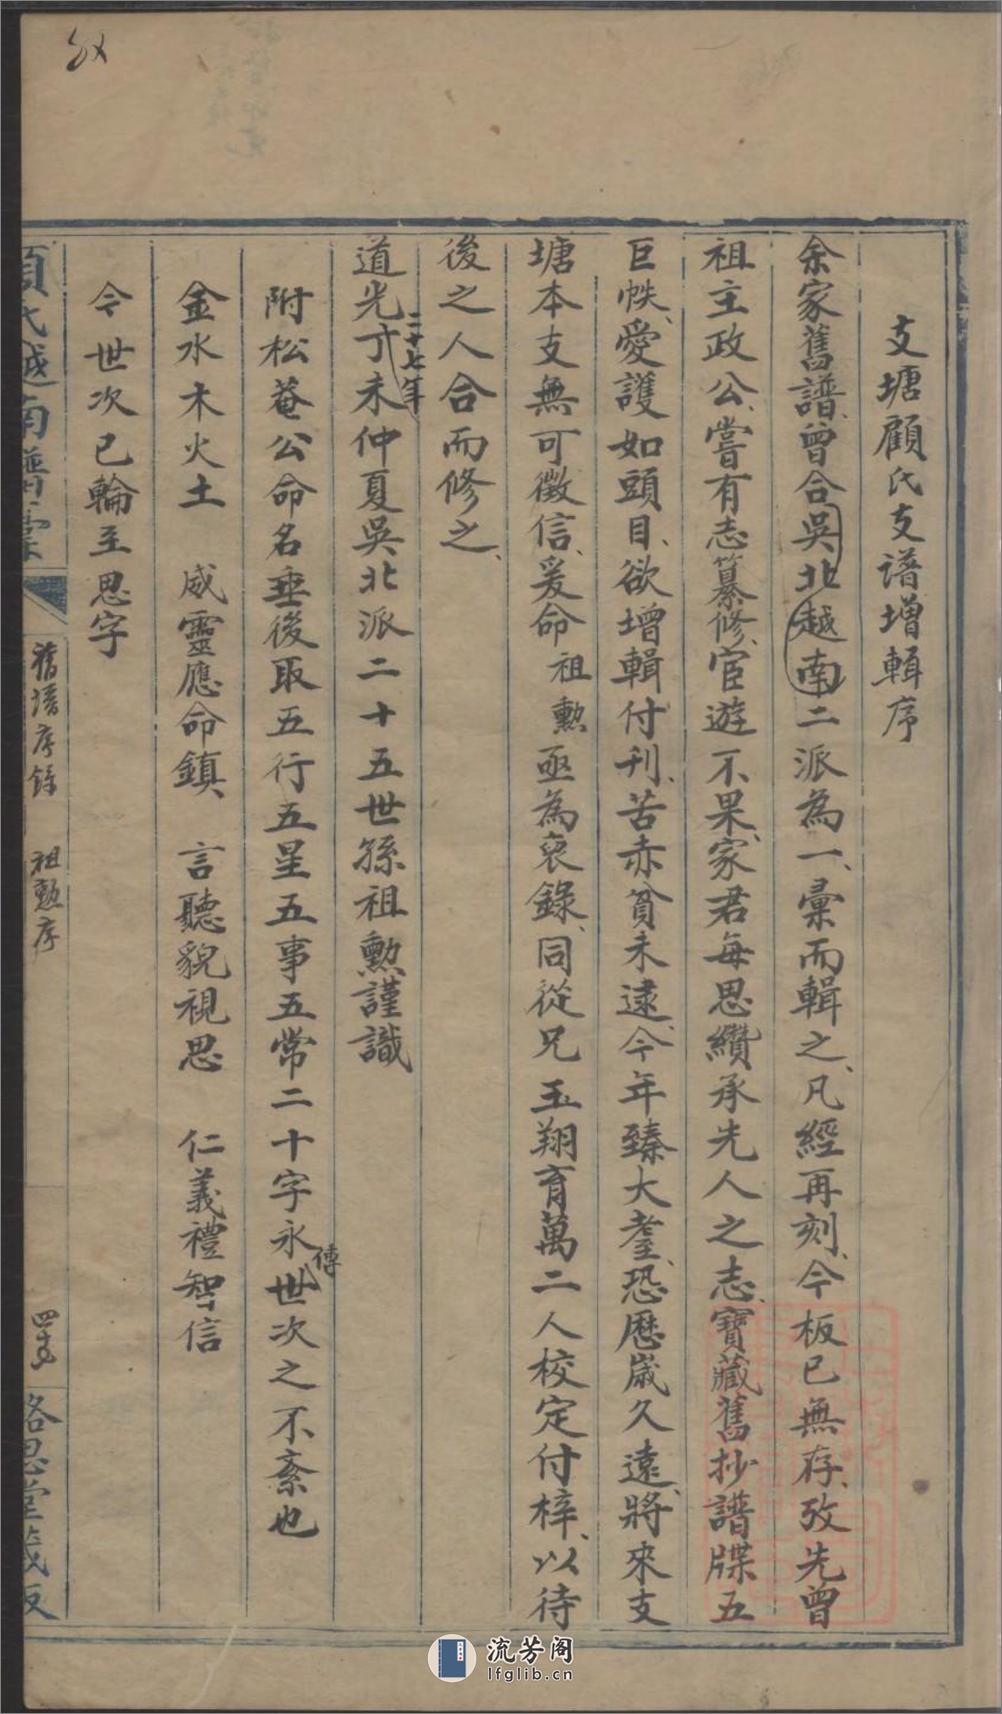 支塘顧氏支谱增輯序
余家舊譜、曾合吳北越南二派為一、彙而輯之、凡經再刻、今板已無存、攷先曾
祖主政公、嘗有志纂修、宦遊不果、家君每思纘承先人之志、寶藏舊抄譜牒五
巨帙、愛護如頭目、欲增輯付刊、苦赤貧未逮、今年臻大耋、恐歷歲久遠、將來支
塘本支無可徵信、爰命祖勲亟為裒錄、同從兄玉翔育萬二人校定付梓、以待
後之人合而修之、
道光二十七年丁未仲夏吳北派二十五世孫祖勲謹識
附松菴公命名垂後取五行五星五事五常二十字永傳世次之不紊也
金水木火土 威靈應命鎮 言聽貌視思 仁義禮智信
今世次已輪至思字
顧氏越南譜彙
舊譜序錄 祖勲序
洛思堂藏板
流芳阁
lfglib.cn